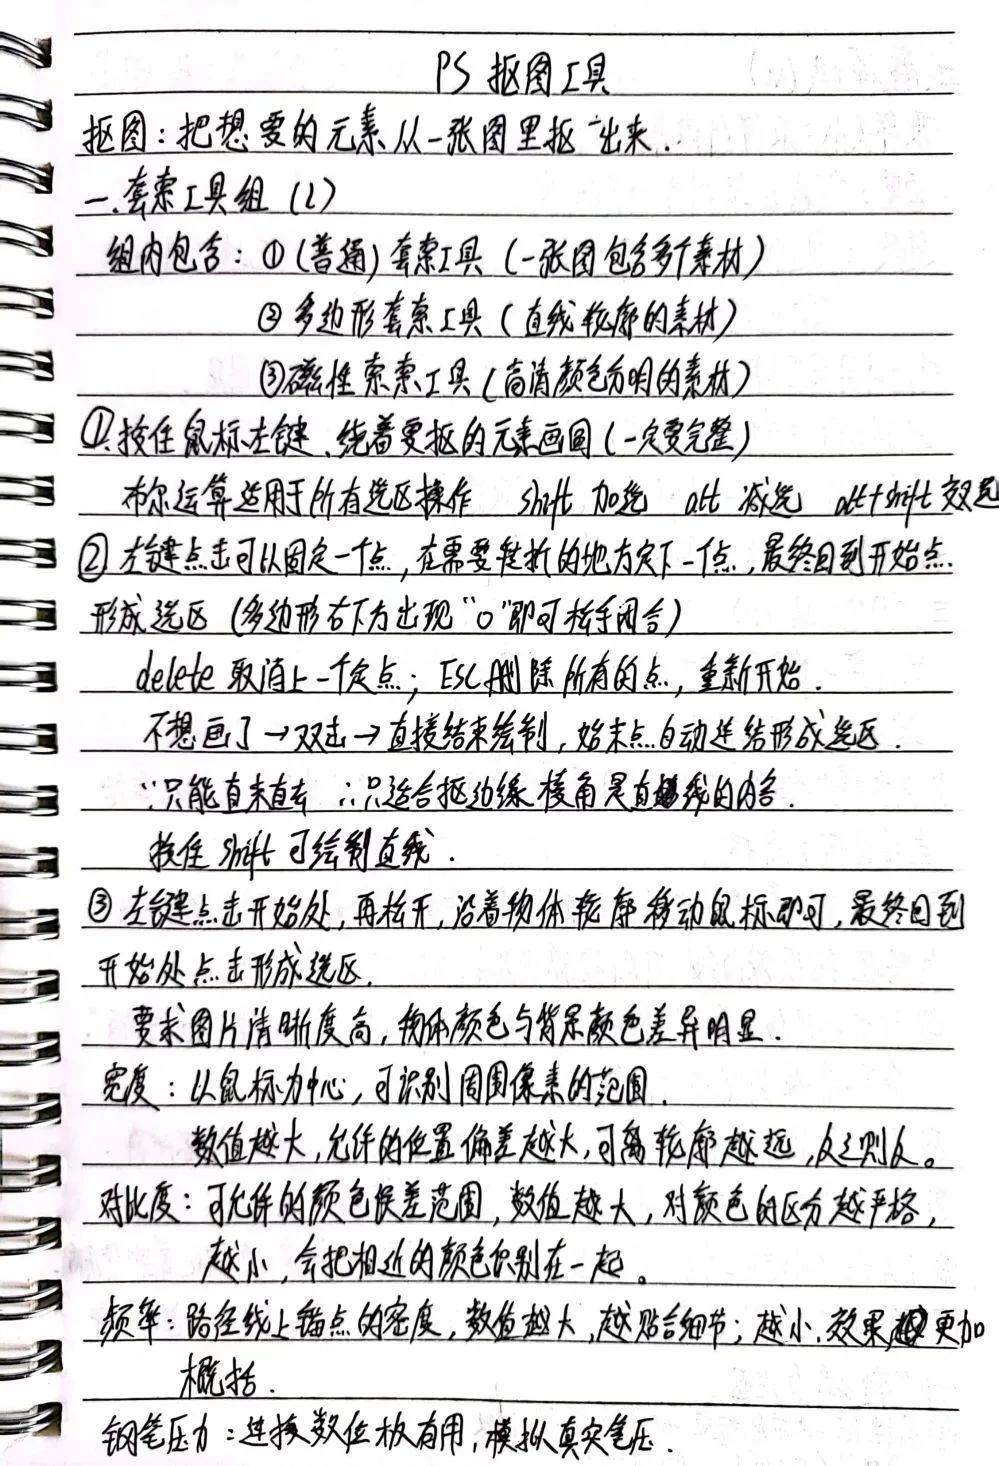 PS 抠图工具
抠图：把想要的元素从一张图里抠"出来.
一.套索工具组（L）
组内包含：①(普通)套索工具（一张图包含多个素材）
②多边形套索工具（直线轮廓的素材）
③磁性索索工具（高清颜色分明的素材）
①.按住鼠标左键、绕着要抠的元素画圆（一定要完整）
布尔运算适用于所有选区操作 shift 加选 alt 减选 alt+shift 交叉选
②左键点击可以固定一个点，在需要转折的地方定下一个点，最终回到开始点
形成选区（多边形右下方出现"o"即可松手闭合）
delete 取消上一个定点；ESC删除所有的点，重新开始.
不想画了→双击→直接结束绘制，始末点自动连结形成选区.
∵只能直来直去 ∴只适合抠边缘棱角是直线的内容.
按住 shift 可绘制直线.
③左键点击开始处，再松开，沿着物体轮廓移动鼠标即可，最终回到
开始处点击形成选区.
要求图片清晰度高，物体颜色与背景颜色差异明显.
宽度：以鼠标为中心，可识别周围像素的范围.
数值越大，允许的位置偏差越大，可离轮廓越远，反之则反。
对比度：可允许的颜色误差范围，数值越大，对颜色的区分越严格，
越小，会把相近的颜色识别在一起。
频率：路径线上锚点的密度，数值越大，越贴合细节；越小，效果更加
概括.
钢笔压力：连接数位板有用，模拟真实笔压.